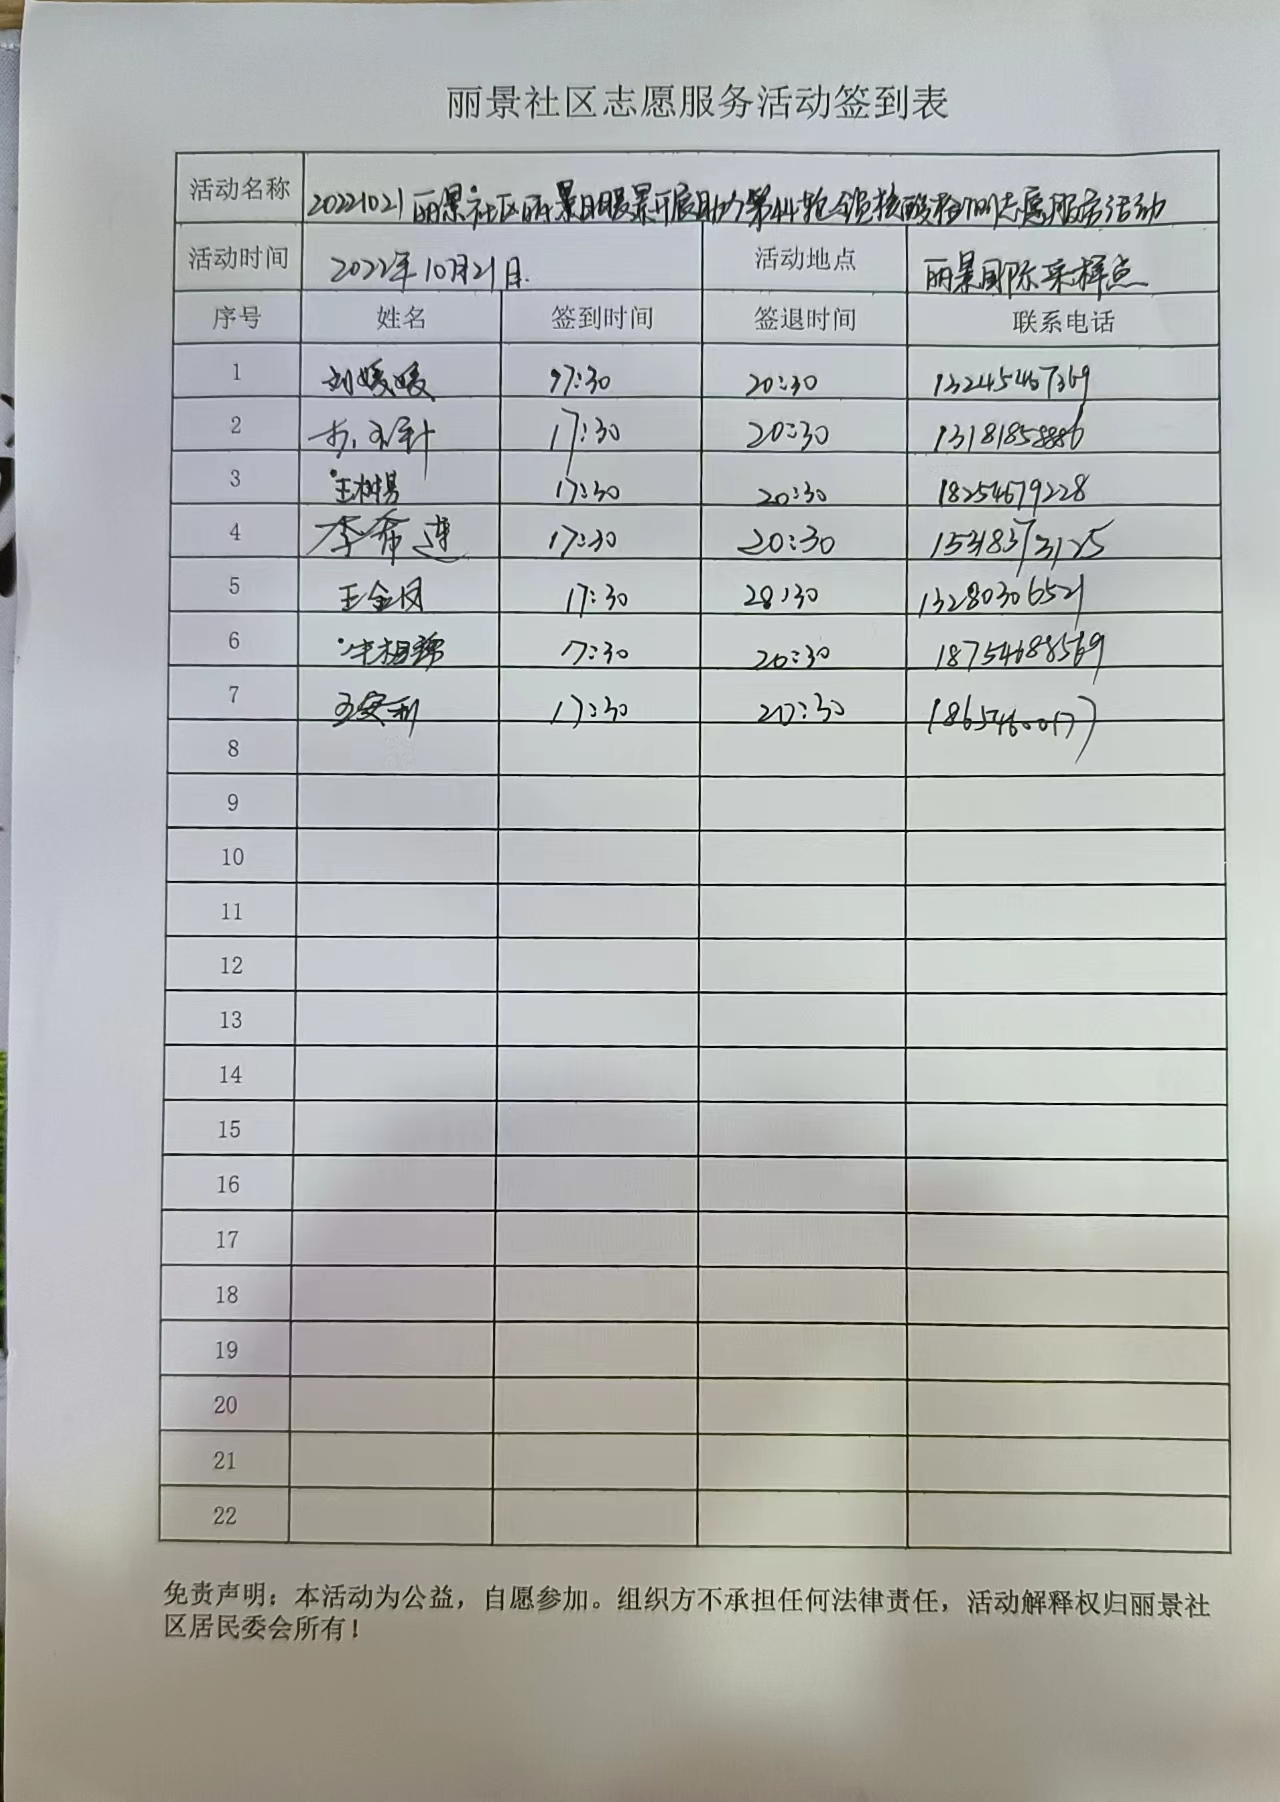 丽景社区志愿服务活动签到表
活动名称 20221021丽景社区丽景 展助力第44轮全员核酸检测志愿服务活动
活动时间 2022年10月21日. 活动地点 丽景国际采样点
序号 姓名 签到时间 签退时间 联系电话
1 刘媛媛 17:30 20:30 13245467369
2 17:30 20:30 13181858886
3 王树易 17:30 20:30 18254679228
4 李希莲 17:30 20:30 15318373125
5 王金凤 17:30 20:30 13280306521
6 17:30 20:30 18754688569
7 王安利 17:30 20:30 18654600177
8
9
10
11
12
13
14
15
16
17
18
19
20
21
22
免责声明：本活动为公益，自愿参加。组织方不承担任何法律责任，活动解释权归丽景社
区居民委会所有！